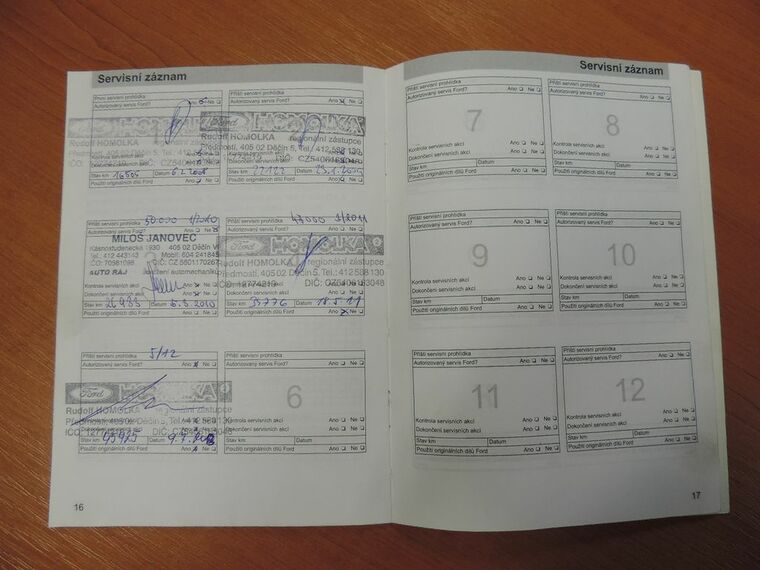 Servisní záznam
První servisní prohlídka
Autorizovaný servis Ford? Ne
Ford HOMOLKA
Rudolf HOMOLKA regionální zástupce
Kontrola servisních akcí
Dokončení servisních akcí
Stav km 16505 Datum
Použití originálních dílů Ford Ano Ne
Příští servisní prohlídka
Autorizovaný servis Ford? Ano Ne
Ford HOMOLKA
Rudolf HOMOLKA regionální zástupce
Předmostí, 405 02 Děčín 5, Tel.: 412 508 130
Stav km 22122 Datum
Použití originálních dílů Ford Ano Ne
50.000 1/2010
Autorizovaný servis Ford? Ano Ne
MILOŠ JANOVEC
Kásnostudenecká 1930 405 02 Děčín VI
Tel.: 412 443143 Mobil: 604 241845
IČO: 70581096 DIČ: CZ
AUTO RÁJ
Kontrola servisních akcí Ano Ne
Dokončení servisních akcí Ano Ne
Stav km 26933 Datum 5.3 2010
Použití originálních dílů Ford Ano Ne
47000 3/2011
Autorizovaný servis Ford? Ano Ne
Ford HOMOLKA
Rudolf HOMOLKA regionální zástupce
Předmostí, 405 02 Děčín 5, Tel.: 412 508 130
IČO: 12774219 DIČ:
Dokončení servisních akcí Ano Ne
Stav km 35776 Datum 18.5.11
Použití originálních dílů Ford Ano Ne
Příští servisní prohlídka
5/12
Autorizovaný servis Ford? Ano Ne
Ford HOMOLKA
Rudolf HOMOLKA regionální zástupce
Stav km Datum
Použití originálních dílů Ford Ano Ne
Příští servisní prohlídka
Autorizovaný servis Ford? Ano Ne
6
Kontrola servisních akcí Ano Ne
Dokončení servisních akcí Ano Ne
Stav km Datum
Použití originálních dílů Ford Ano Ne
16
Servisní záznam
Příští servisní prohlídka
Autorizovaný servis Ford? Ano Ne
7
Kontrola servisních akcí Ano Ne
Dokončení servisních akcí Ano Ne
Stav km Datum
Použití originálních dílů Ford Ano Ne
Příští servisní prohlídka
Autorizovaný servis Ford? Ano Ne
8
Kontrola servisních akcí Ano Ne
Dokončení servisních akcí Ano Ne
Stav km Datum
Použití originálních dílů Ford Ano Ne
Příští servisní prohlídka
Autorizovaný servis Ford? Ano Ne
9
Kontrola servisních akcí Ano Ne
Dokončení servisních akcí Ano Ne
Stav km Datum
Použití originálních dílů Ford Ano Ne
Příští servisní prohlídka
Autorizovaný servis Ford? Ano Ne
10
Kontrola servisních akcí Ano Ne
Dokončení servisních akcí Ano Ne
Stav km Datum
Použití originálních dílů Ford Ano Ne
Příští servisní prohlídka
Autorizovaný servis Ford? Ano Ne
11
Kontrola servisních akcí Ano Ne
Dokončení servisních akcí Ano Ne
Stav km Datum
Použití originálních dílů Ford Ano Ne
Příští servisní prohlídka
Autorizovaný servis Ford? Ano Ne
12
Kontrola servisních akcí Ano Ne
Dokončení servisních akcí Ano Ne
Stav km Datum
Použití originálních dílů Ford Ano Ne
17